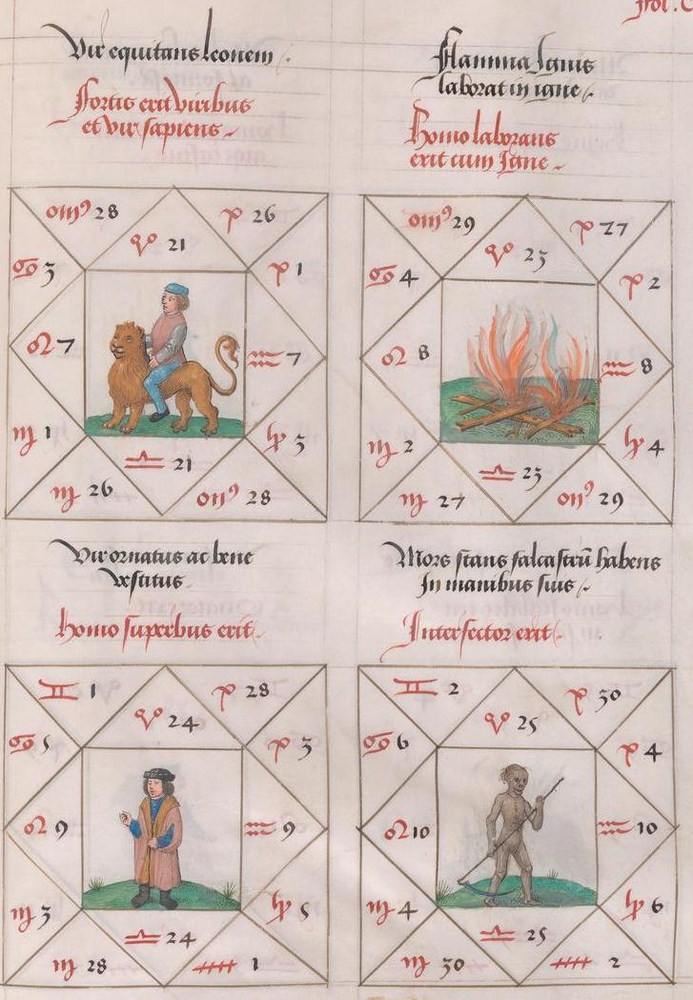 fol. C
Vir equitans leonem
Fortis erit viribus
et vir sapiens
♉ 28
♓ 26
♈ 21
♋ 3
♓ 1
♌ 7
♒ 7
♍ 1
♑ 3
♎ 21
♏ 26
28
Flamma Ignis
laborat in igne
Homo laborans
erit cum Igne
29
♓ 27
♈ 23
♋ 4
♓ 2
♌ 8
♒ 8
♍ 2
♑ 4
♎ 23
♏ 27
29
Vir ornatus ac bene
vestitus
Homo superbus erit
♊ 1
♓ 28
♈ 24
♋ 5
♓ 3
♌ 9
♒ 9
♍ 3
♑ 5
♎ 24
♏ 28
1
Mors stans falcastrū habens
In manibus suis
Interfector erit
♊ 2
♓ 30
♈ 25
♋ 6
♓ 4
♌ 10
♒ 10
♍ 4
♑ 6
♎ 25
♏ 30
2